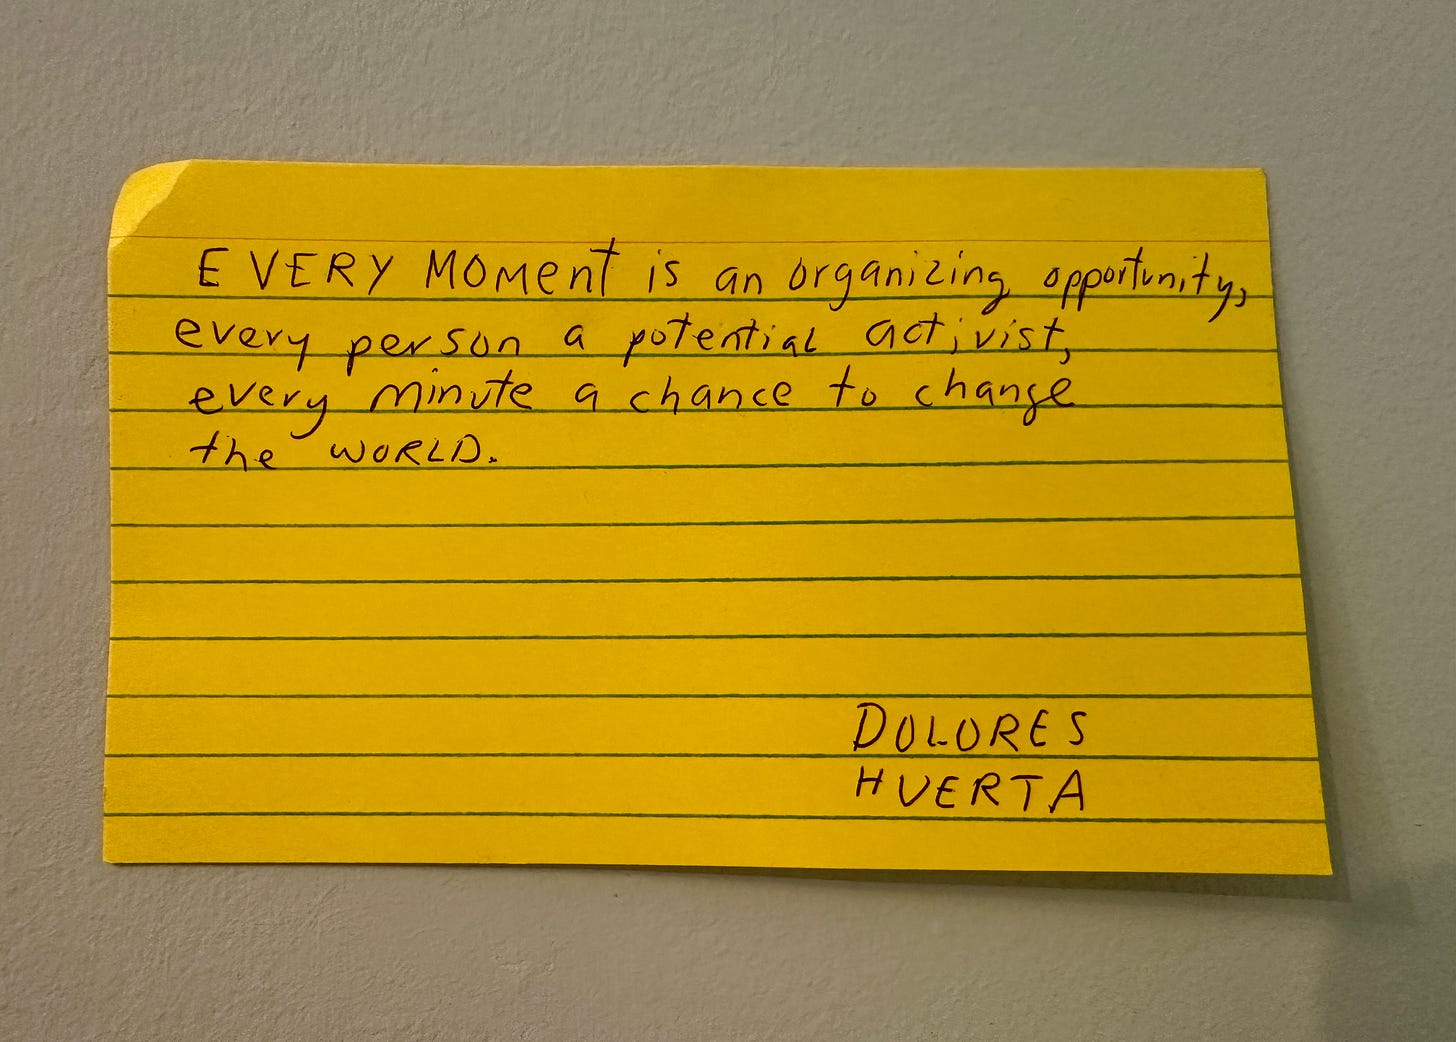 EVERY MOMENT is an organizing opportunity,
every person a potential activist,
every minute a chance to change
the WORLD.
DOLORES
HUERTA